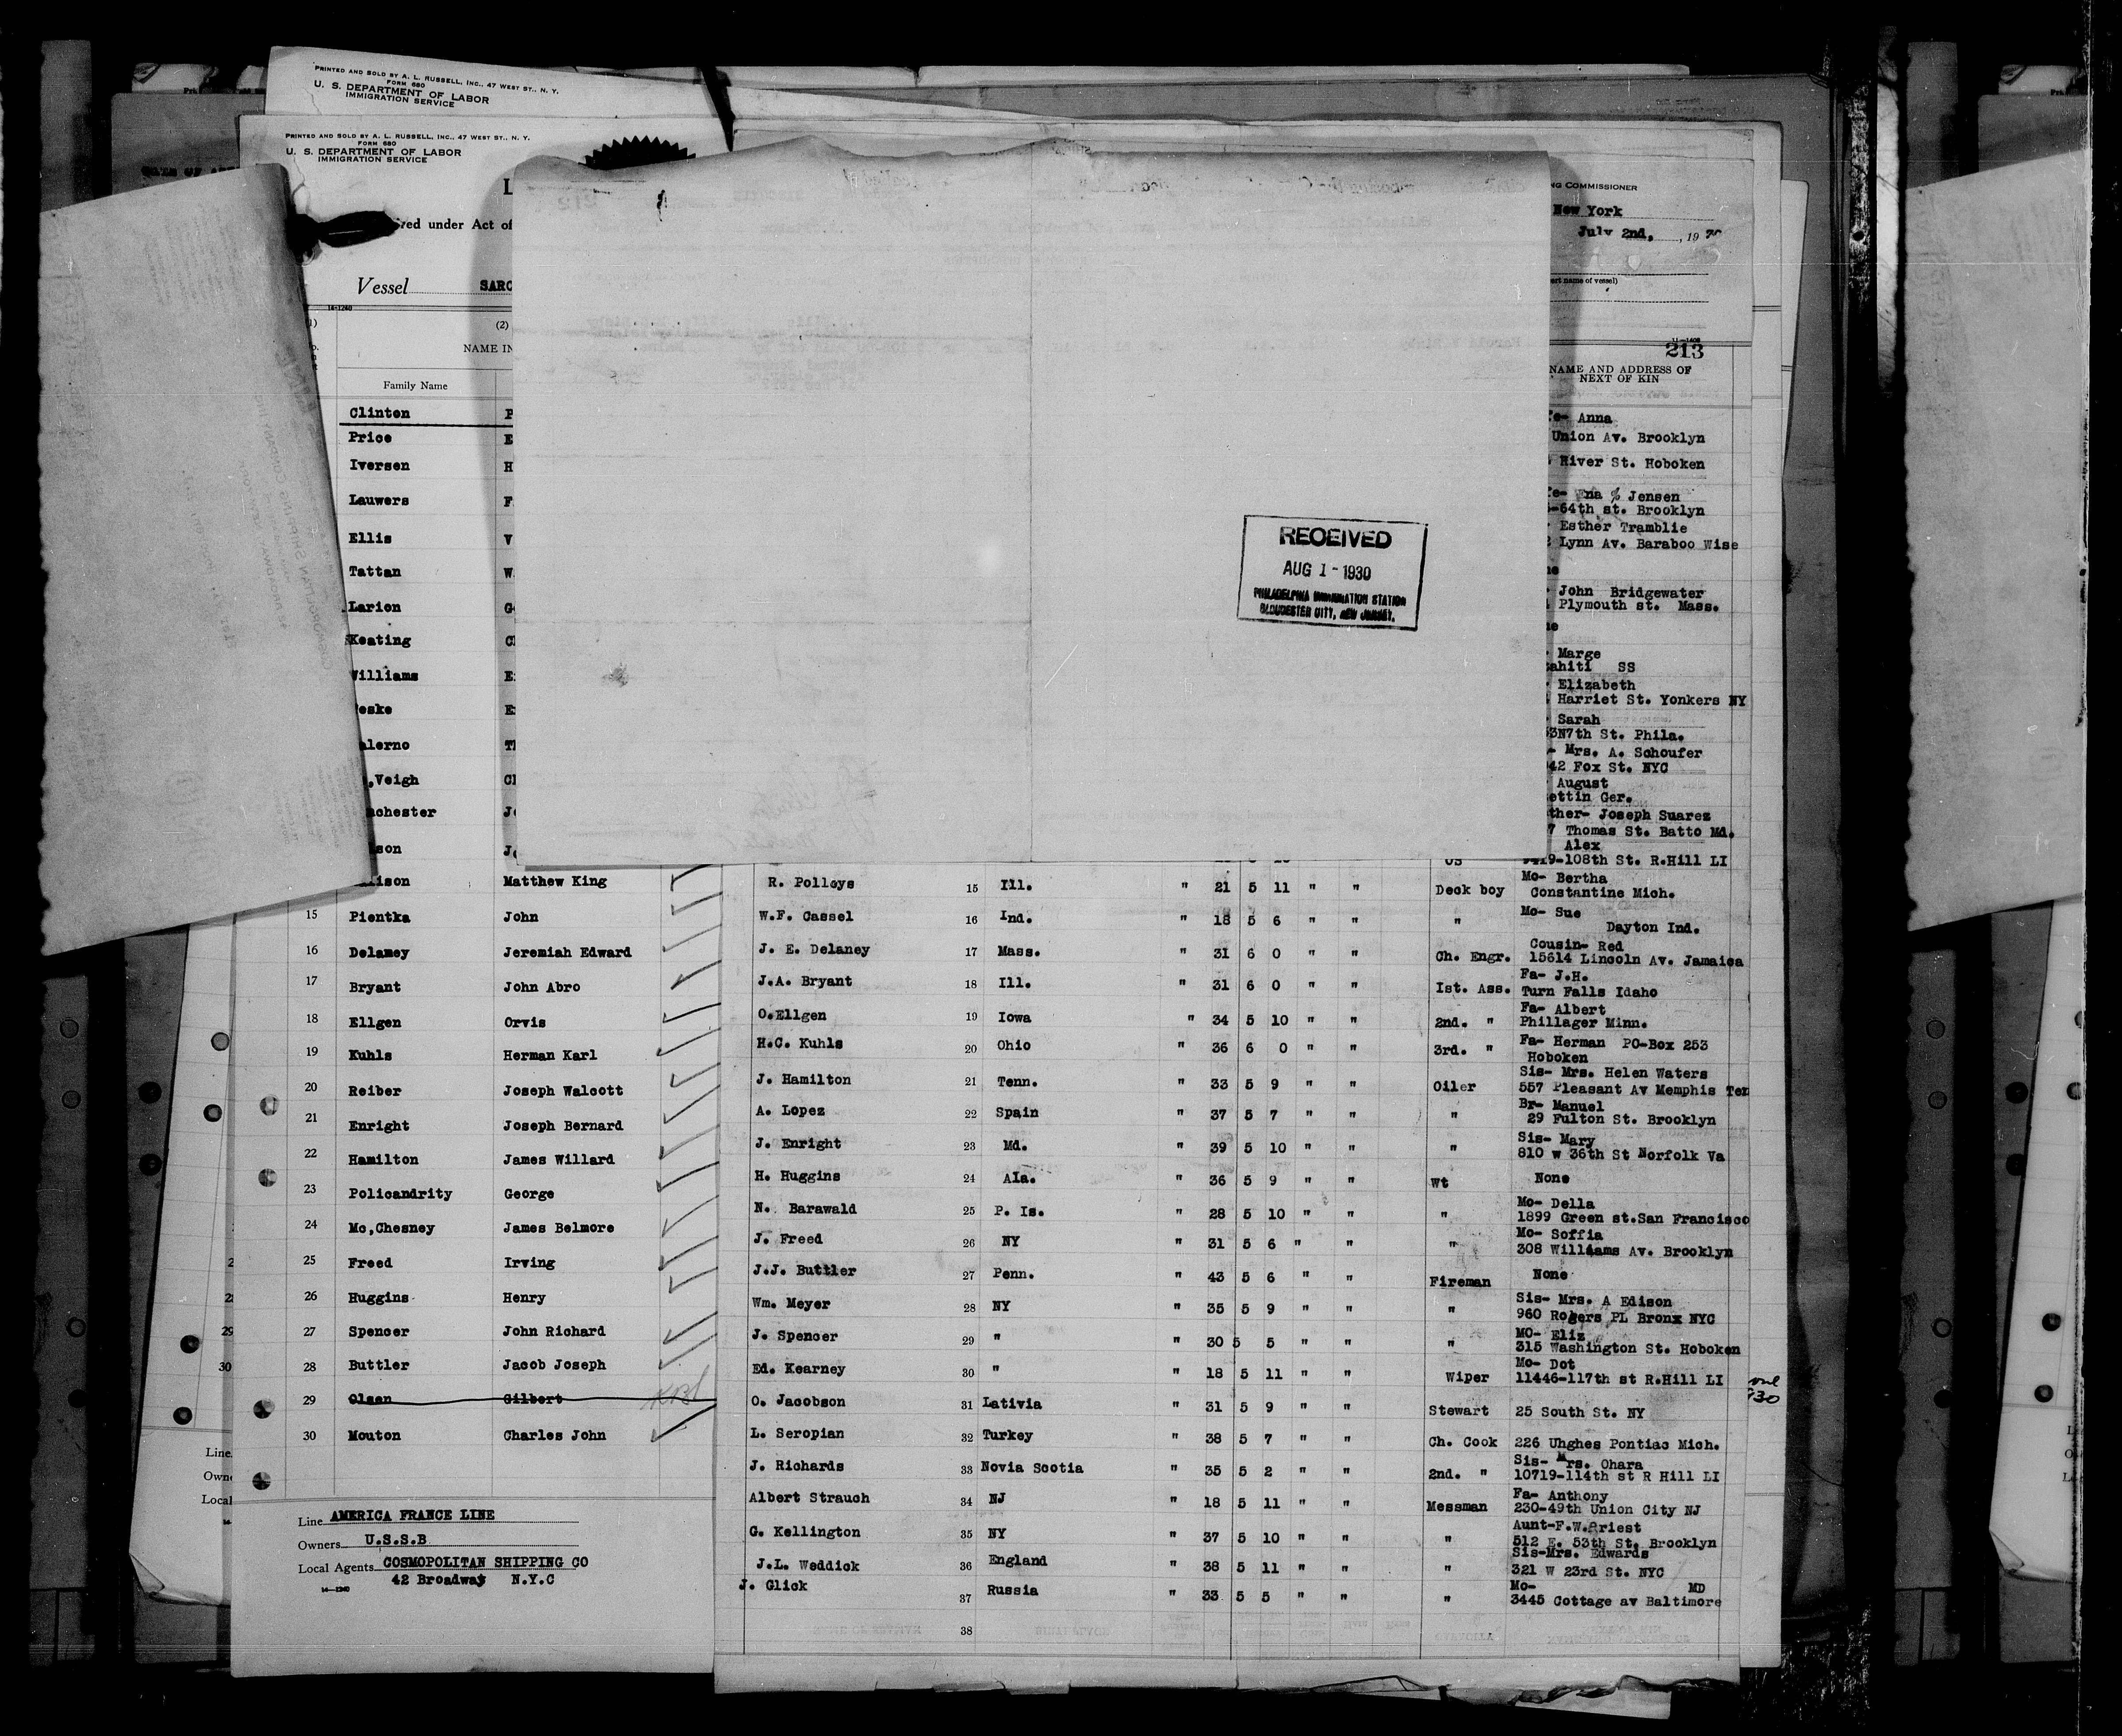 PRINTED AND SOLD BY A. L. RUSSELL, INC., 47 WEST ST., N. Y.
FORM 680
U. S. DEPARTMENT OF LABOR
IMMIGRATION SERVICE
PRINTED AND SOLD BY A. L. RUSSELL, INC., 47 WEST ST., N. Y.
FORM 680
U. S. DEPARTMENT OF LABOR
IMMIGRATION SERVICE
L
ved under Act of
Vessel SARC
14-1240
(2)
NAME IN
Family Name
Clinton P
Price E
Iversen H
Lauwers F
Ellis V
Tattan W
Larion G
Keating C
Williams E
eske E
alerno T
,Veigh C
nchester J
son J
ison Matthew King
15 Pientka John
16 Delamey Jeremiah Edward
17 Bryant John Abro
18 Ellgen Orvis
19 Kuhls Herman Karl
20 Reiber Joseph Walcott
21 Enright Joseph Bernard
22 Hamilton James Willard
23 Policandrity George
24 Mc,Chesney James Belmore
25 Freed Irving
26 Huggins Henry
27 Spencer John Richard
28 Buttler Jacob Joseph
29 Olsen Gilbert
30 Mouton Charles John
29
30
Line
Own
Local
Line AMERICA FRANCE LINE
Owners U.S.S.B
Local Agents COSMOPOLITAN SHIPPING CO
42 Broadway N.Y.C
14-1240
RECEIVED
AUG 1 - 1930
PHILADELPHIA IMMIGRATION STATION
GLOUCESTER CITY, NEW JERSEY.
NG COMMISSIONER
New York
July 2nd, , 19
ert name of vessel)
213
NAME AND ADDRESS OF
NEXT OF KIN
e- Anna
Union Av. Brooklyn
River St. Hoboken
e- na % Jensen
-64th st. Brooklyn
Esther Tramblie
Lynn Av. Baraboo Wise
ne
John Bridgewater
Plymouth st. Mass.
ne
Marge
ahiti SS
Elizabeth
Harriet St. Yonkers NY
Sarah
3N7th St. Phila.
- Mrs. A. Schoufer
42 Fox St. NYC
August
ettin Ger.
ther- Joseph Suarez
7 Thomas St. Batto Md.
Alex
OS 9419-108th St. R.Hill LI
R. Polloys 15 Ill. " 21 5 11 " " Deck boy Mo- Bertha
Constantine Mich.
W.F. Cassel 16 Ind. " 18 5 6 " " " Mo- Sue
Dayton Ind.
J. E. Delaney 17 Mass. " 31 6 0 " " Ch. Engr. Cousin- Red
15614 Lincoln Av. Jamaica
J.A. Bryant 18 Ill. " 31 6 0 " " Ist. Ass. Fa- J.H.
Turn Falls Idaho
O.Ellgen 19 Iowa " 34 5 10 " " 2nd. " Fa- Albert
Phillager Minn.
H.C. Kuhls 20 Ohio " 36 6 0 " " 3rd. " Fa- Herman PO-Box 253
Hoboken
J. Hamilton 21 Tenn. " 33 5 9 " " Oiler Sis- Mrs. Helen Waters
557 Pleasant Av Memphis Ten
A. Lopez 22 Spain " 37 5 7 " " " Br- Manuel
29 Fulton St. Brooklyn
J. Enright 23 Md. " 39 5 10 " " " Sis- Mary
810 w 36th St Norfolk Va
H. Huggins 24 Ala. " 36 5 9 " " Wt None
N. Barawald 25 P. Is. " 28 5 10 " " " Mo- Della
1899 Green st.San Francisco
J. Freed 26 NY " 31 5 6 " " " Mo- Soffia
308 Williams Av. Brooklyn
J.J. Buttler 27 Penn. " 43 5 6 " " Fireman None
Wm. Meyer 28 NY " 35 5 9 " " " Sis- Mrs. A Edison
960 Rogers PL Bronx NYC
J. Spencer 29 " " 30 5 5 " " " MO- Eliz
315 Washington St. Hoboken
Ed. Kearney 30 " " 18 5 11 " " Wiper Mo- Dot
11446-117th st R.Hill LI
O. Jacobson 31 Lativia " 31 5 9 " " Stewart 25 South St. NY
L. Seropian 32 Turkey " 38 5 7 " " Ch. Cook 226 Uhghes Pontiac Mich.
J. Richards 33 Novia Scotia " 35 5 2 " " 2nd. " Sis- Mrs. Ohara
10719-114th st R Hill LI
Albert Strauch 34 NJ " 18 5 11 " " Messman Fa- Anthony
230-49th Union City NJ
G. Kellington 35 NY " 37 5 10 " " " Aunt-F.W.Priest
512 E. 53th St. Brooklyn
J.L. Weddick 36 England " 38 5 11 " " " Sis-Mrs. Edwards
321 W 23rd St. NYC
J. Glick 37 Russia " 33 5 5 " " " Mo- MD
3445 Cottage av Baltimore
38